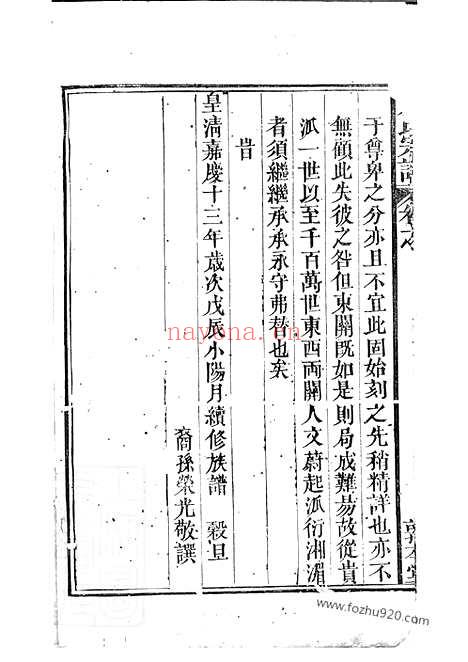 于尊卑之分亦且不宜此固始刻之先稍精詳也亦不
無顧此失彼之咎但東關既如是則局成難易故從貴
派一世以至千百萬世東西両關人文蔚起派衍湘湄
者須繼繼承承永守弗替也矣
旹
皇清嘉慶十三年歲次戊辰小陽月續修族譜 穀旦
裔孫榮光敬譔
氏宗譜
敦本堂
nayona.cn
www.fozhu920.com